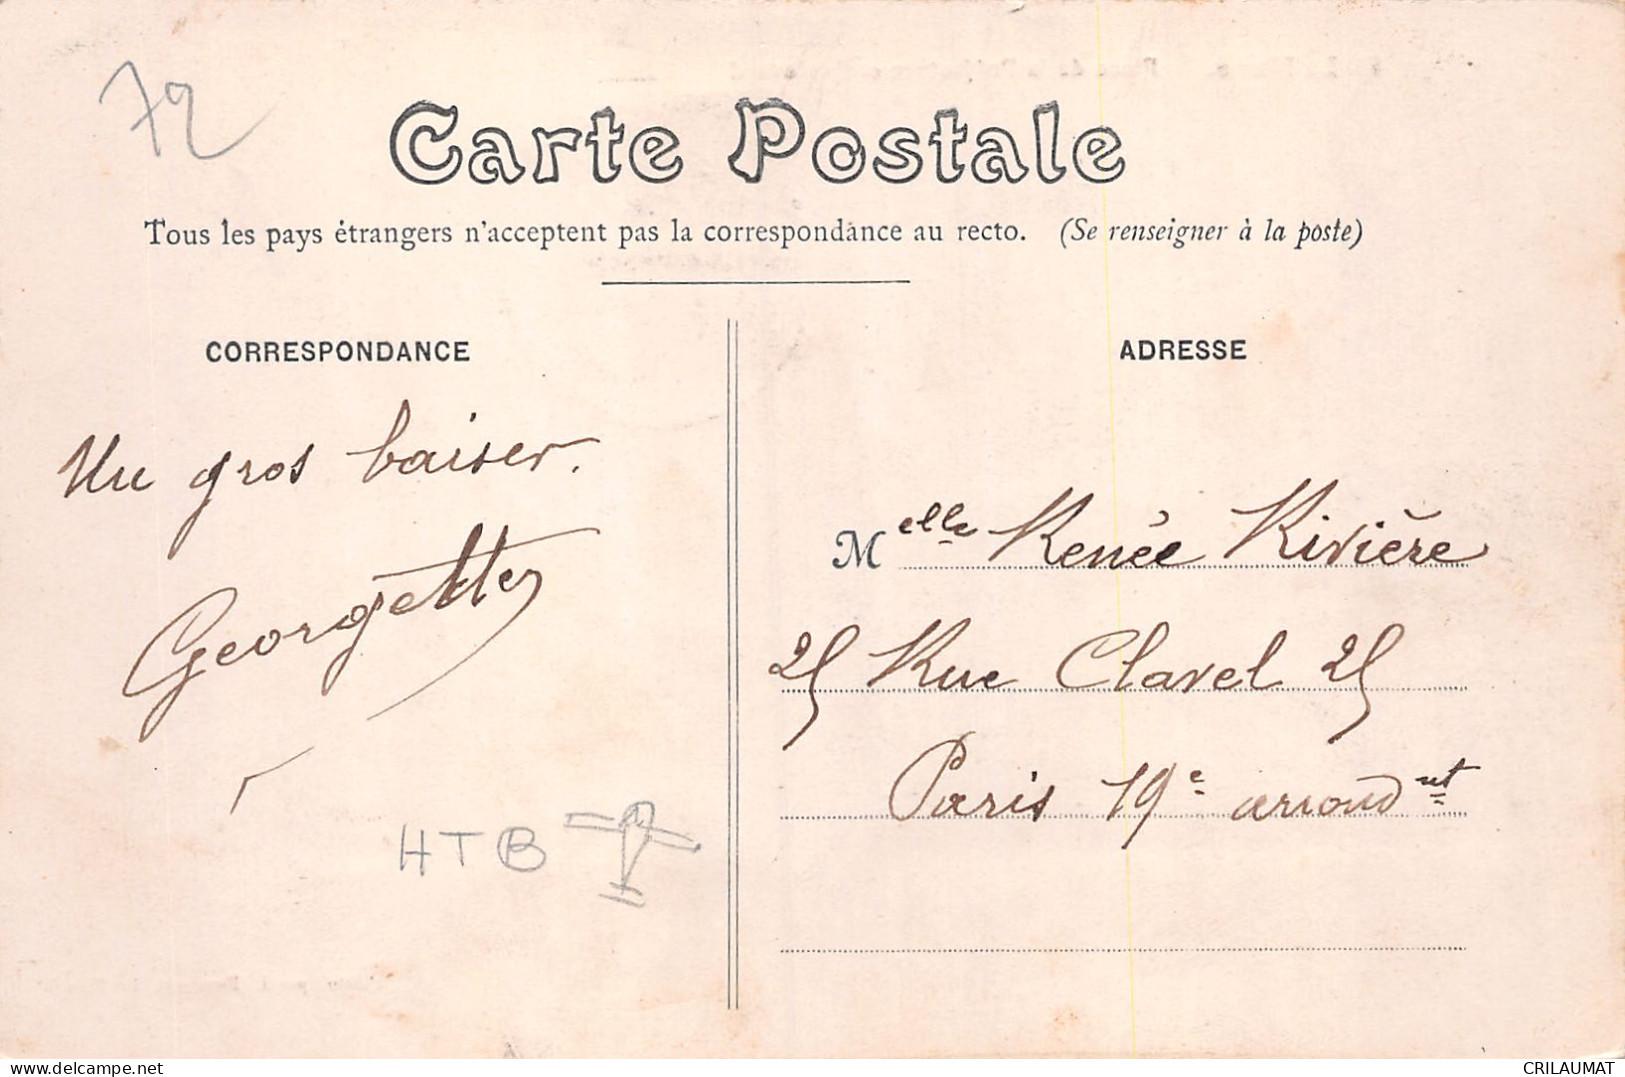 72
Carte Postale
Tous les pays étrangers n'acceptent pas la correspondance au recto. (Se renseigner à la poste)
CORRESPONDANCE
Un gros baiser.
Georgette
HTB
ADRESSE
Melle Renée Rivière
25 Rue Clavel 25
Paris 19e arrondnt
delcampe.net
CRILAUMAT